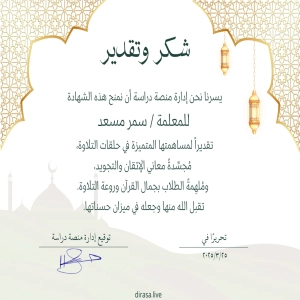 شكر وتقدير
يسرنا نحن إدارة منصة دراسة أن نمنح هذه الشهادة
للمعلمة / سمر مسعد
تقديراً لمساهمتها المتميزة في حلقات التلاوة،
مُجسّدةً معاني الإتقان والتجويد،
ومُلهمةً الطلاب بجمال القرآن وروعة التلاوة.
تقبل الله منها وجعله في ميزان حسناتها.
تحريرًا في
٢٠٢٥/٣/٢٥
توقيع إدارة منصة دراسة
dirasa.live